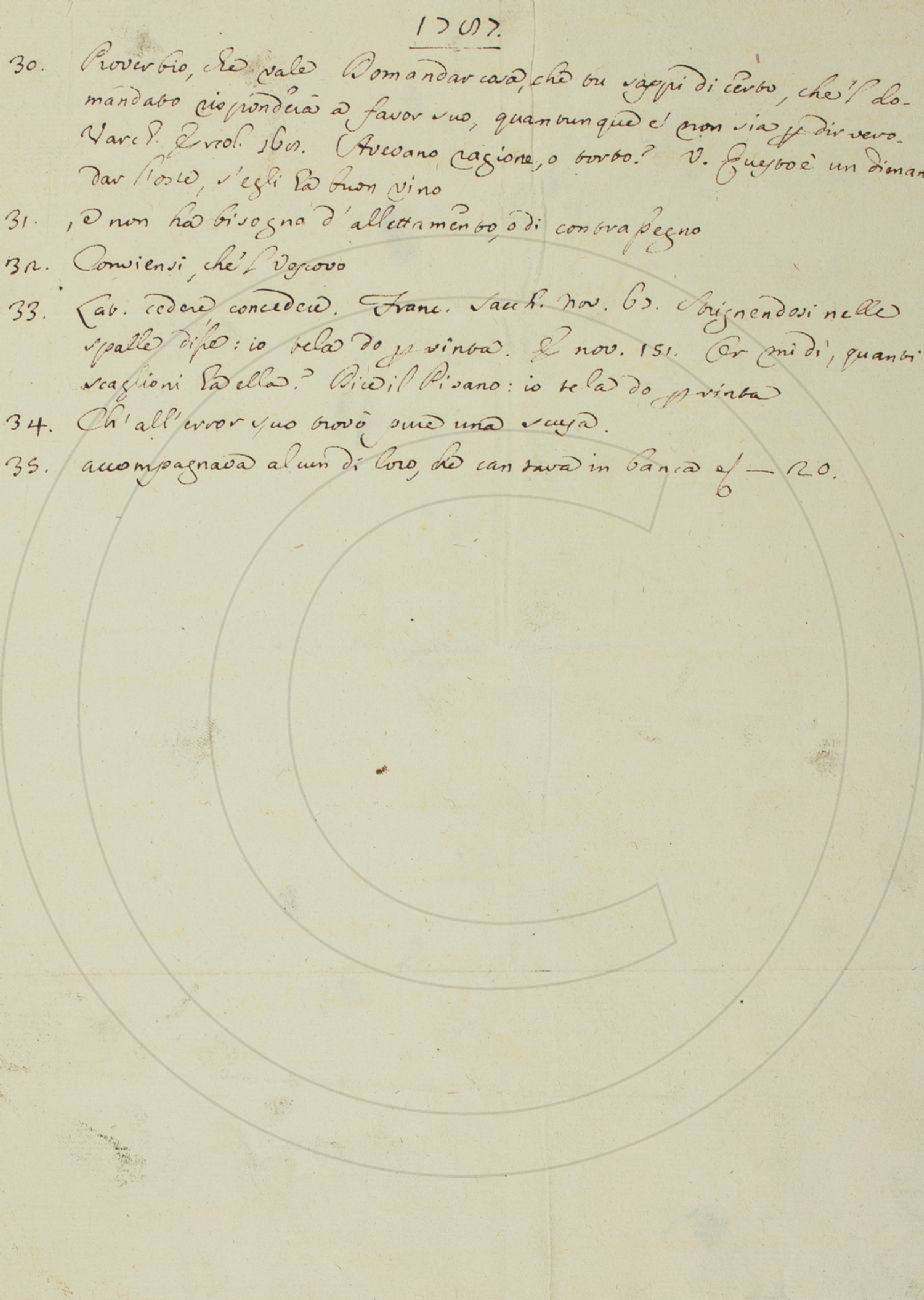 1787.
30. Proverbio, che vale Domandar cosa, che tu sappi di certo, che 'l do-
mandato risponderà a favor suo, quantunque e' non sia p dir vero.
Varch. Ercol. 168. Avevano ragione, o torto? V. Questo è un diman
dar l'oste, s'egli ha buon vino
31. , e non ha bisogno d'allettamento, o di contrapegno
32. Conviensi, che 'l Vescovo
33. Lat. cedere, concedere. Franc. Sacch. nov. 67. Strignendosi nelle
spalle disse: io tela do p vinta. E nov. 151. Or mi dì, quanti
scaglioni ha ella? Dice il Pisano: io te la do p vinta
34. Ch' all'error suo trovò pure una scusa.
35. accompagnava alcun di loro, che cantava in banca — 20.